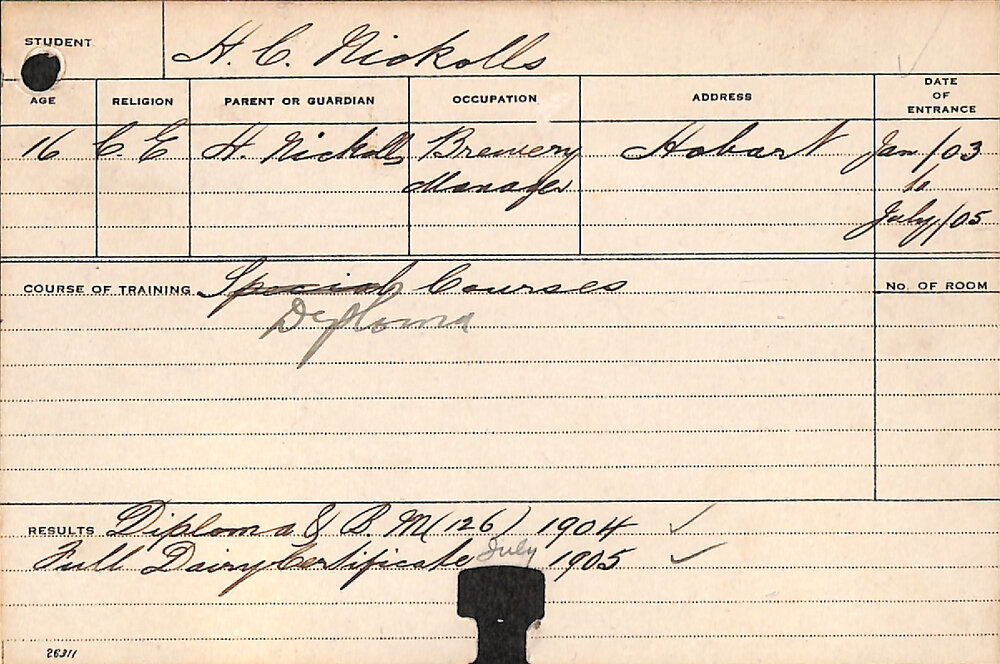 STUDENT H. C. Nickolls
AGE RELIGION PARENT OR GUARDIAN OCCUPATION ADDRESS DATE OF ENTRANCE
16 C. E H. Nickolls Brewery Hobart Jan/03
Manager to
July/05
COURSE OF TRAINING Special Courses No. OF ROOM
Diploma
RESULTS Diploma & B M (126) 1904
Full Dairy Certificate July 1905
26311